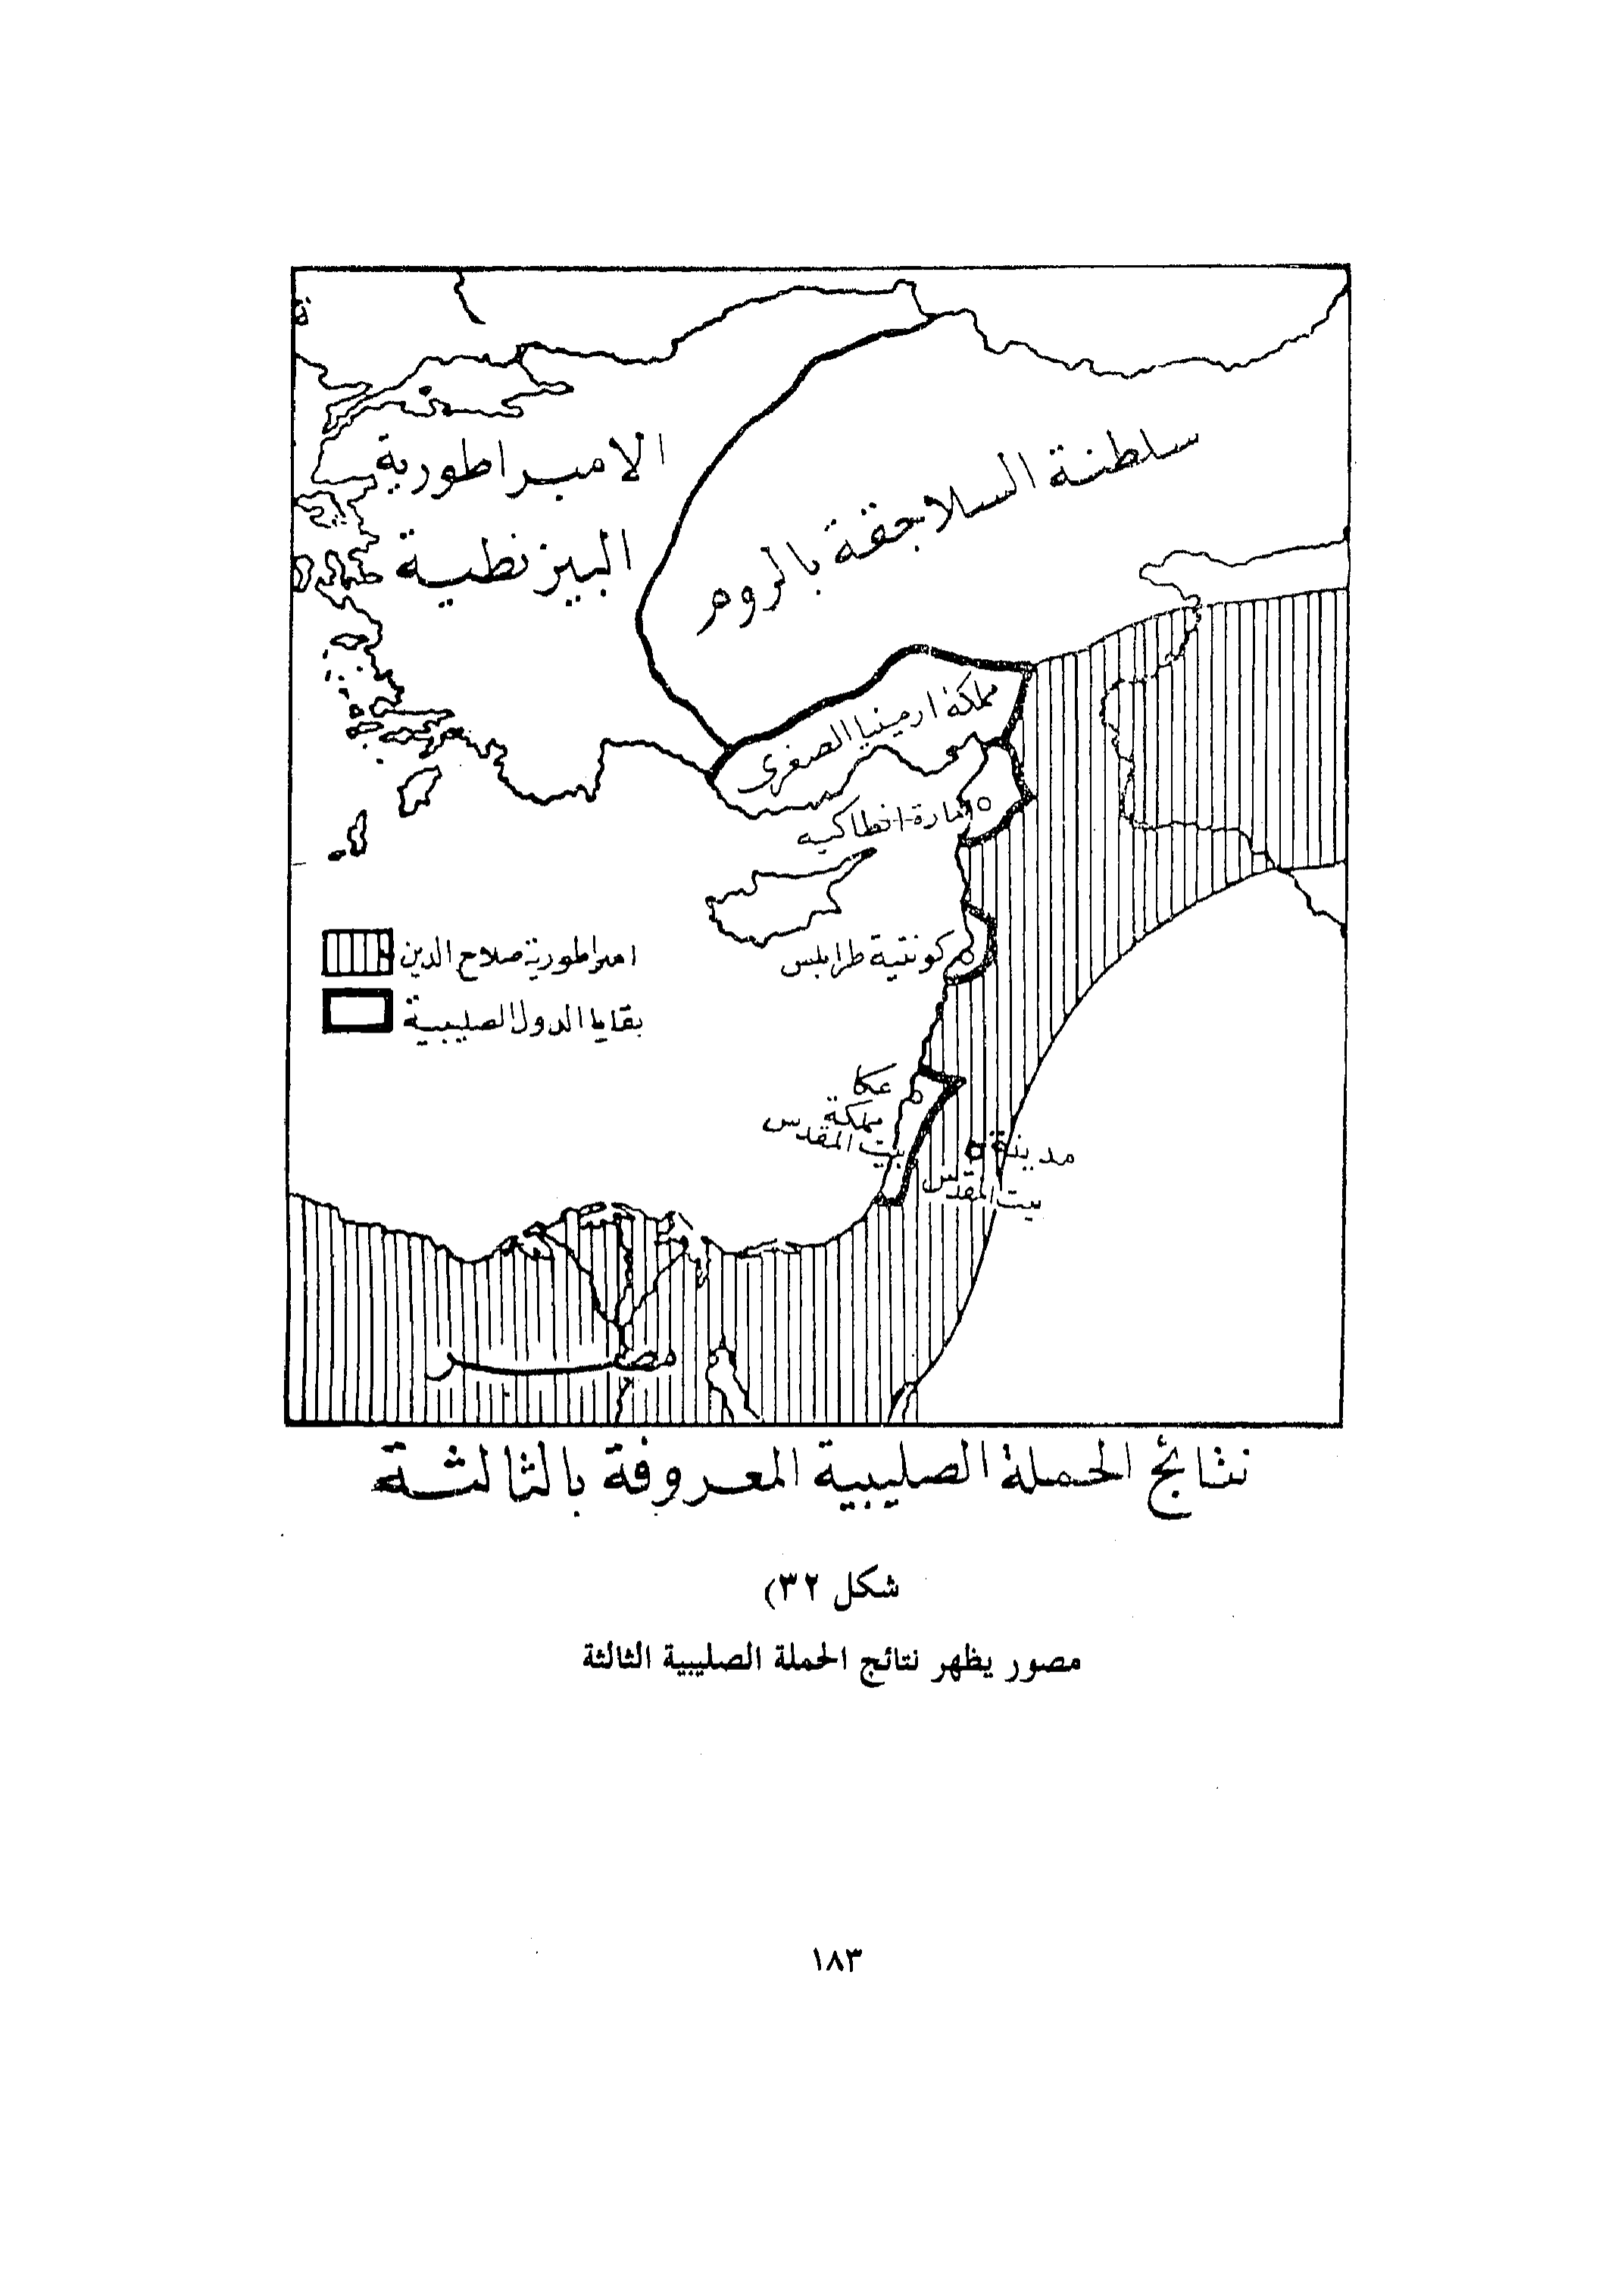 ة
الامبراطورية
البيزنطية
سلطنة السلاجقة بالروم
مملكة ارمينيا الصغرى
امارة انطاكيه
كونتية طرابلس
امبراطورية صلاح الدين
بقايا الدول الصليبية
عكا
مملكة
بيت المقدس
مدينة
بيت المقدس
مصر
نتائج الحملة الصليبية المعروفة بالثالثة
شكل ٣٢)
مصور يظهر نتائج الحملة الصليبية الثالثة
١٨٣